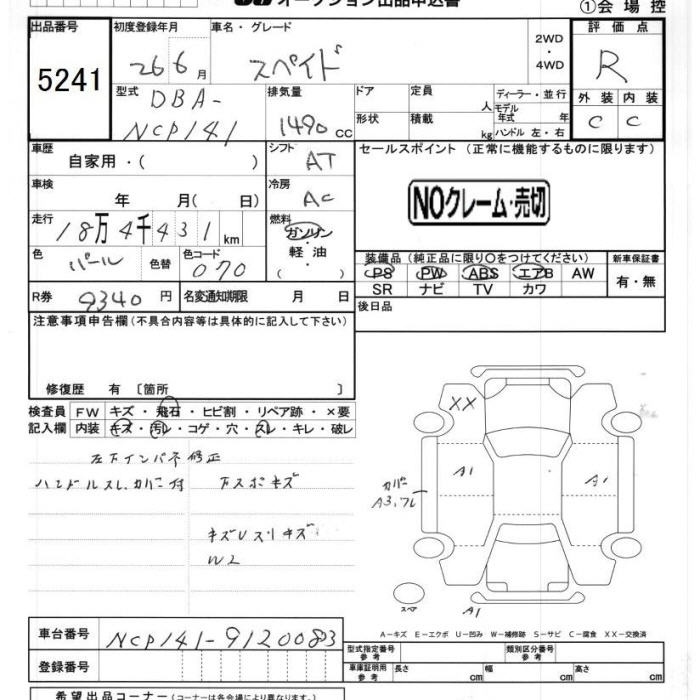 オークション出品申込書
①会場控
出品番号 初度登録年月 車名・グレード 評価点
5241 26 6月 スペイド 2WD・4WD R
型式 DBA-NCP141 排気量 1490 CC ドア 定員 人 ディーラー・並行 外装 内装
形状 積載 kg モデル年式 年 ハンドル 左・右 C C
車歴 自家用・( ) シフト AT セールスポイント(正常に機能するものに限ります)
車検 年 月( 日) 冷房 AC NOクレーム・売切
走行 18万4千431km 燃料 ガソリン・軽油・( )
色 パール 色替 色コード 070
装備品(純正品に限り○をつけてください) 新車保証書
PS PW ABS エアB AW 有・無
SR ナビ TV カワ
R券 9340円 名変通知期限 月 日 後日品
注意事項申告欄(不具合内容等は具体的に記入して下さい)
修復歴 有〔箇所 〕
検査員 FW キズ・飛石・ヒビ割・リペア跡・×要
記入欄 内装 キズ・汚レ・コゲ・穴・スレ・キレ・破レ
左下インパネ修正
ハンドルスレ、カバー付 下スポキズ
キズUスリキズ
W2
XX
A1
A1
カバー
A3、ワレ
スペア
A1
A-キズ E-エクボ U-凹み W-補修跡 S-サビ C-腐食 XX-交換済
車台番号 NCP141-9120083 型式指定番号 参考 類別区分番号 参考
登録番号 車庫証明用 参考 長さ cm 幅 cm 高さ cm
希望出品コーナー(コーナーは各会場により異なります。)